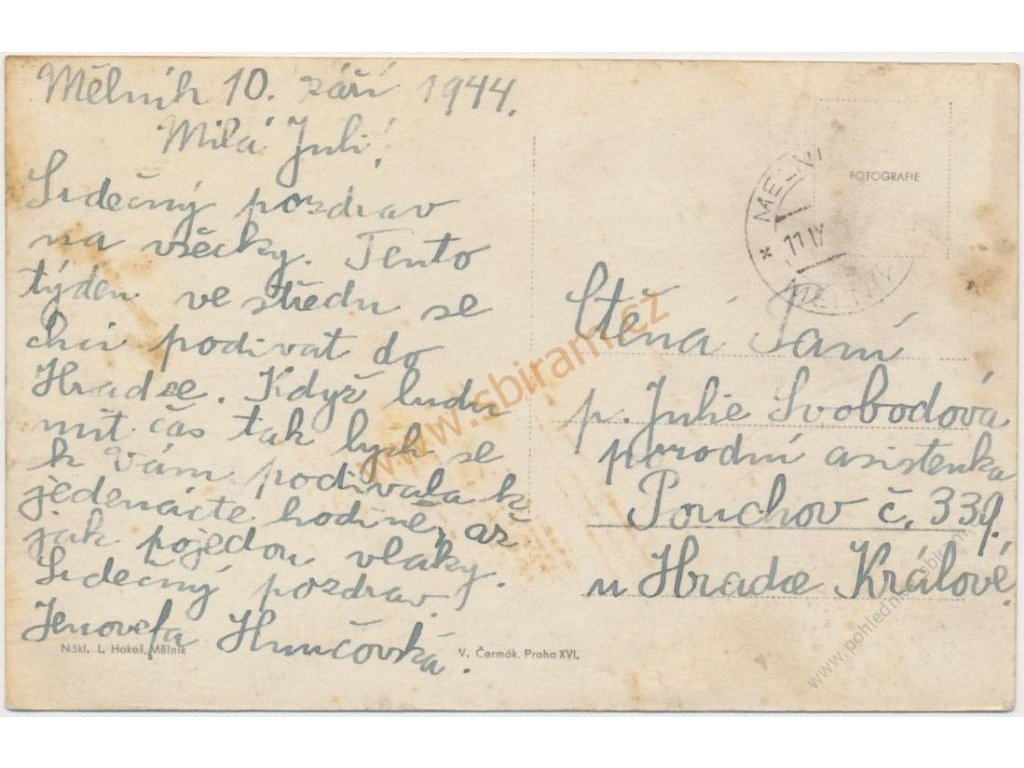 Mělník 10. září 1944.
Milá Juli!
Srdečný pozdrav
na všecky. Tento
týden ve středu se
chci podívat do
Hradce. Když budu
mít čas tak bych se
k vám podívala k
jedenácte hodině, až
jak pojedou vlaky.
Srdečný pozdrav!
Jenovefa
Nákl. L. Hokeš, Mělník
V. Čermák, Praha XVI.
FOTOGRAFIE
11 IX
MĚLNÍK
Ctěná Paní
p. Julie Svobodová
porodní asistenka
Pouchov č. 339.
u Hradce Králové
www.sbiram.cz